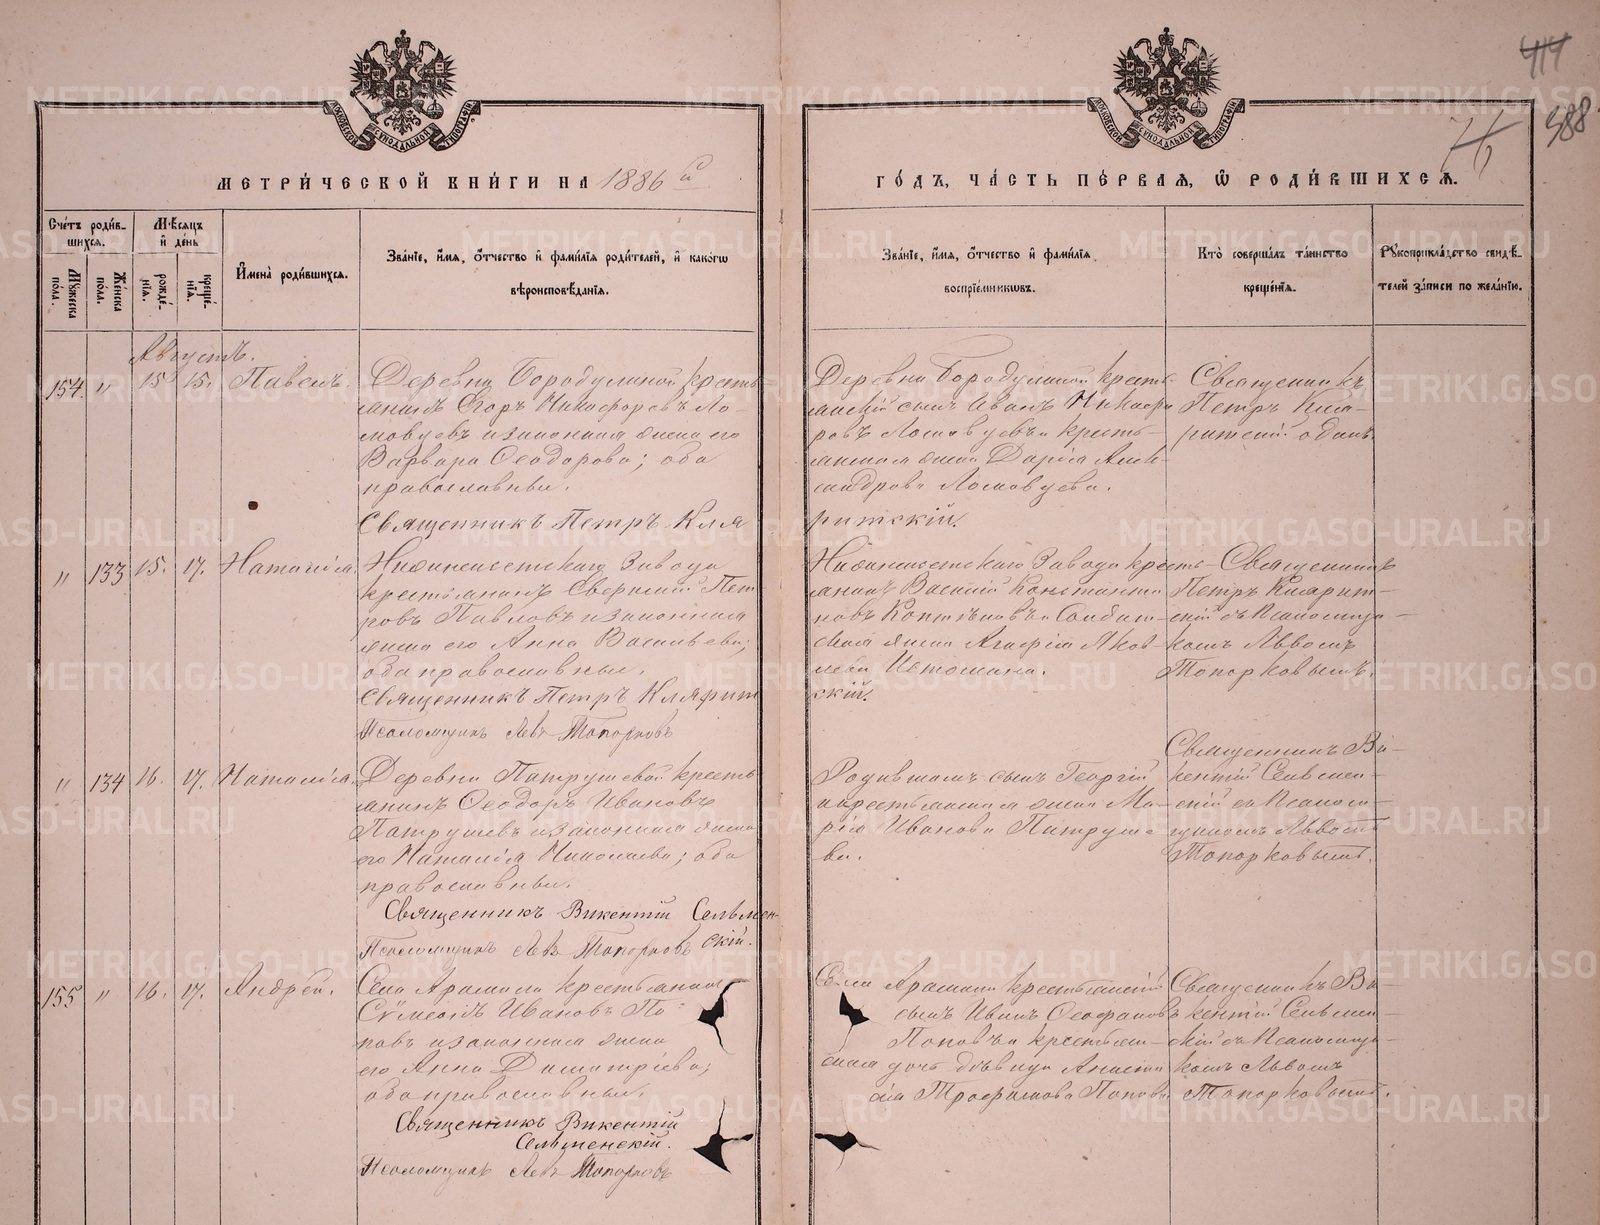 414
388
МЕТРИ́ЧЕСКОЙ КНИ́ГИ НА 1886 й
ГО́ДЪ, ЧА́СТЬ ПЕ́РВАЯ, Ѡ РОДИ́ВШИХСЯ.
Сче́тъ роди́в-
шихся.
Мꙋжеска по́ла.
Же́нска по́ла.
Мѣ́сяцъ
и҆ де́нь
рожде́-
нїя.
креще́-
нїя.
И҆мена̀ роди́вшихся.
Зва́нїе, и҆́мя, ѻ҆́тчество и҆ фами́лїя роди́телей, и҆ како́гѡ
вѣроисповѣ́данїя.
Зва́нїе, и҆́мя, ѻ҆́тчество и҆ фами́лїя
воспрїе́мникѡвъ.
Кто̀ соверша́лъ та́инство
креще́нїя.
Рꙋкоприкла́дство свидѣ́-
телей за́писи по жела́нїю.
Августъ.
154. " 15. 15. Павелъ.
Деревни Бородулиной кресть-
янинъ Егоръ Никифоровъ Ло-
мовцевъ и законная жена его
Варвара Ѳеодорова; оба
православные.
Священникъ Петръ Кля
ритскій.
Деревни Бородулиной кресть-
янскій сынъ Иванъ Никифо
ровъ Ломовцевъ и кресть-
янская жена Дарія Алек-
сандрова Ломовцева.
Священникъ
Петръ Кляритскій одинъ.
" 133 15. 17. Наталія.
Нижнеисетскаго Завода
крестьянинъ Северьянъ Пет
ровъ Павловъ и законная
жена его Анна Васильева;
оба православные.
Священникъ Петръ Клярит
скій.
Псаломщикъ Левъ Топорковъ
Нижнеисетскаго Завода кресть-
янинъ Василій Константи
новъ Коптяковъ и Солдат-
ская жена Агафія Яков-
лева Истомина.
Священникъ
Петръ Клярит-
скій съ Псаломщи-
комъ Львомъ
Топорковымъ.
" 134 16. 17. Наталія.
Деревни Патрушевой кресть
янинъ Ѳеодоръ Ивановъ
Патрушевъ и законная жена
его Наталія Николаева; оба
православные.
Священникъ Викентій Сельмен-
скій.
Псаломщикъ Левъ Топорковъ
Родившаго сынъ Георгій
и крестьянская жена Ма-
рія Иванова Патруше
ва.
Священникъ Ви-
кентій Сельмен-
скій съ Псалом-
щикомъ Львомъ
Топорковымъ.
155 " 16. 17. Андрей.
Села Арамили крестьянинъ
Сѵмеонъ Ивановъ По-
повъ и законная жена
его Анна Димитріева;
оба православные.
Священникъ Викентій
Сельменскій.
Псаломщикъ Левъ Топорковъ
Села Арамили крестьянскій
сынъ Иванъ Ѳеофановъ
Поповъ и крестьян-
ская дочь дѣвица Анаста
сія Трофимова Попова.
Священникъ Ви-
кентій Сельмен-
скій съ Псаломщи-
комъ Львомъ
Топорковымъ.
METRIKI.GASO-URAL.RU